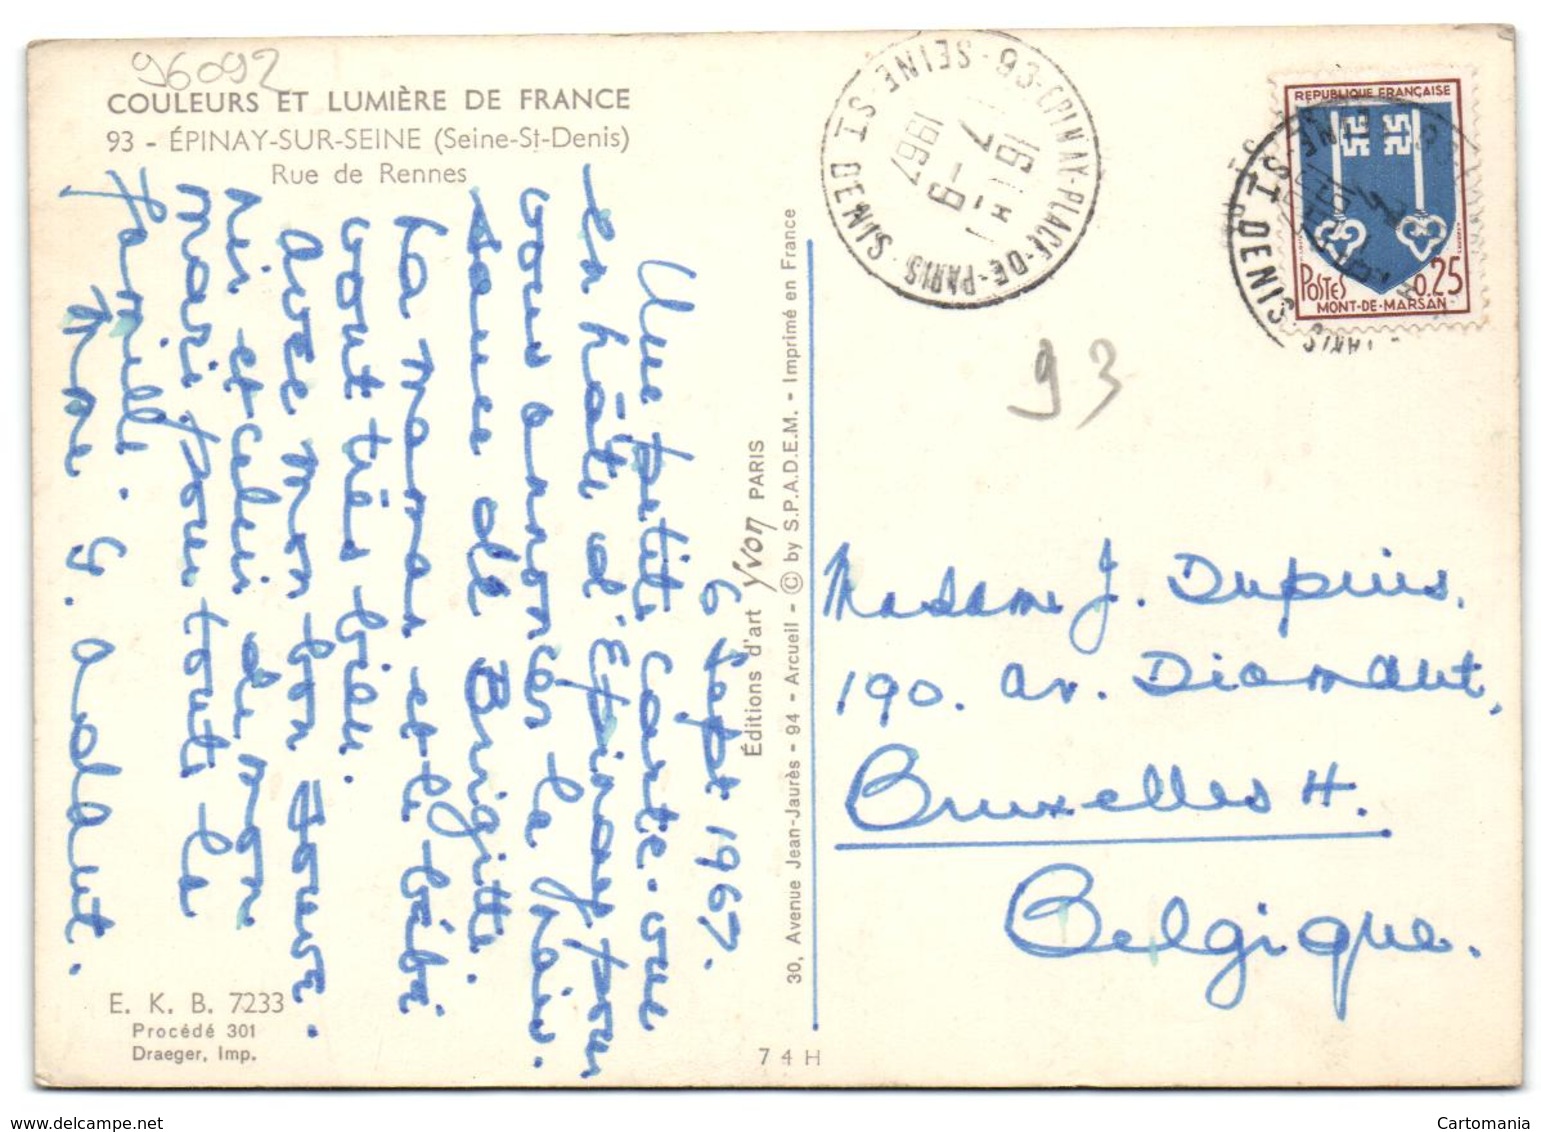 96092
COULEURS ET LUMIÈRE DE FRANCE
93 - ÉPINAY-SUR-SEINE (Seine-St-Denis)
Rue de Rennes
6 Sept. 1967.
Une petite carte-vue
en hâte d'Épinay pour
vous annoncer la
de Brigitte.
La maman et le bébé
vont très bien.
Avec mon bon souve-
nir et celui de mon
mari pour toute la
famille.
Mme. G.
E. K. B. 7233
Procédé 301
Draeger, Imp.
Éditions d'art Yvon PARIS
30, Avenue Jean-Jaurès - 94 - Arcueil - © by S.P.A.D.E.M. - Imprimé en France
74H
93-EPINAY-PLACE-DE-PARIS
SEINE-ST DENIS
16H
7-9
1967
REPUBLIQUE FRANÇAISE
POSTES 0,25
MONT-DE-MARSAN
93
Madame J. Dupuis.
190. av. Diamant,
Bruxelles 4.
Belgique.
Cartomania